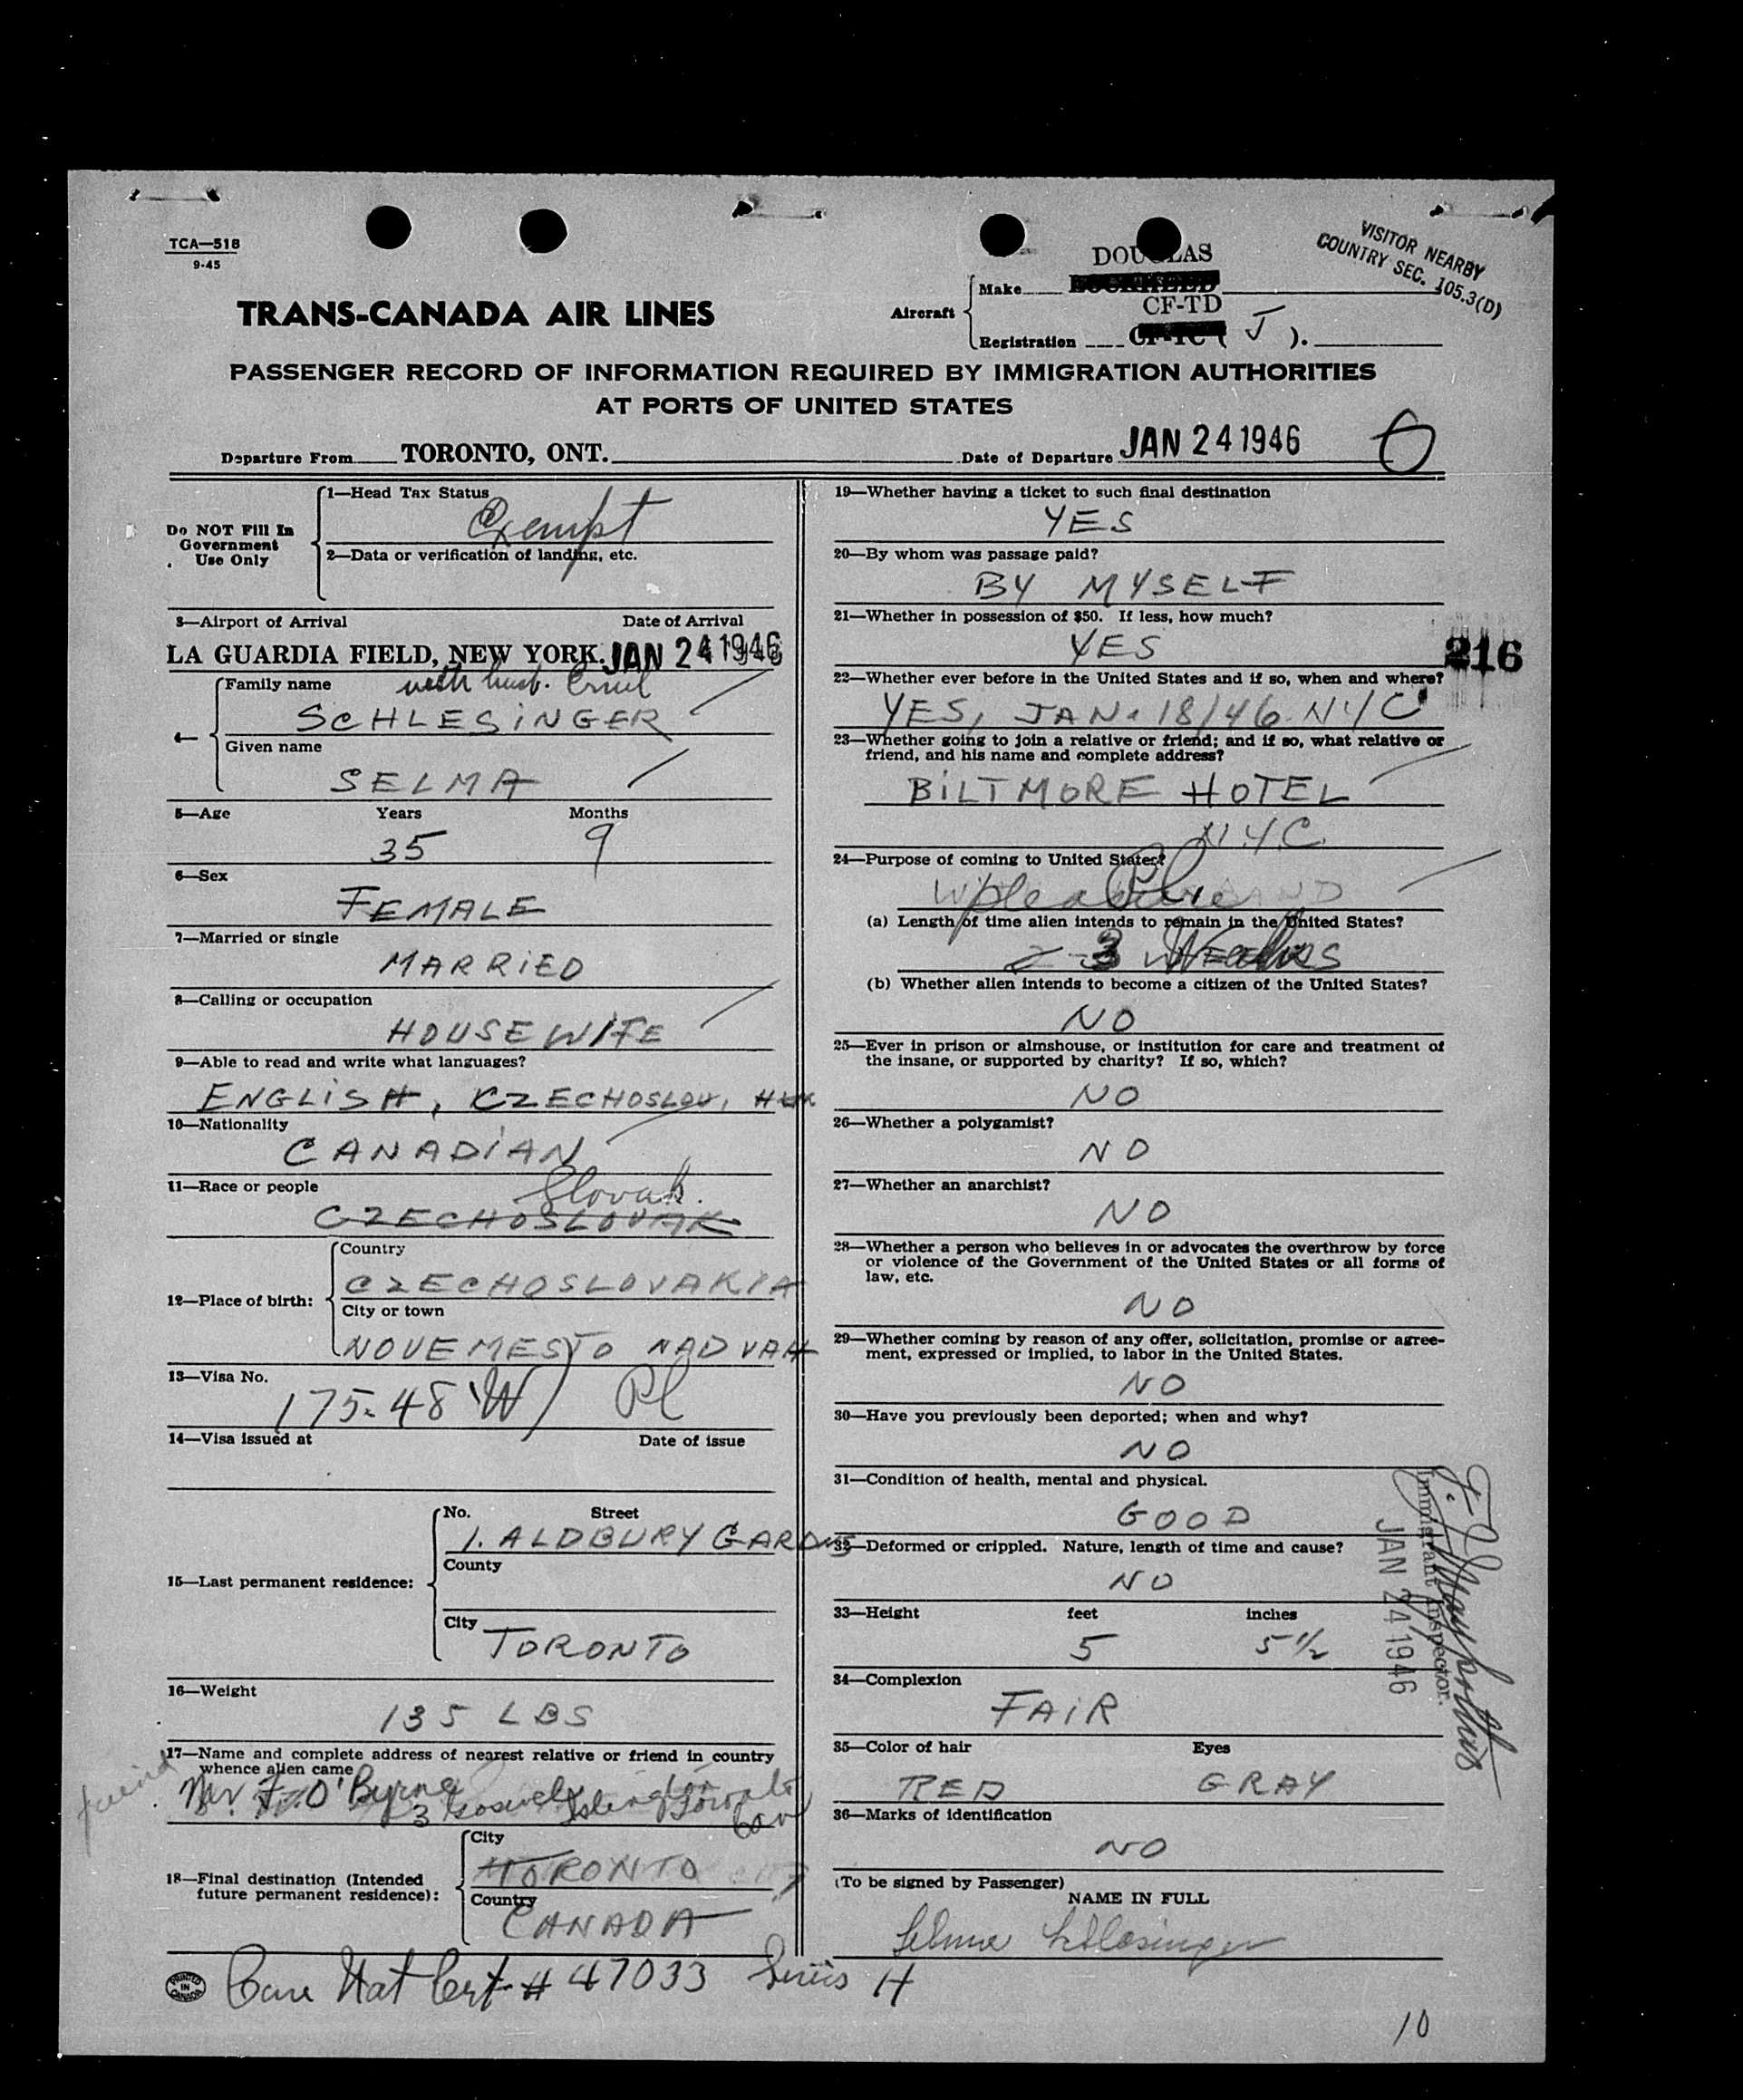 TCA—518
9-45
VISITOR NEARBY
COUNTRY SEC. 105.3(D)
TRANS-CANADA AIR LINES
Aircraft
DOUGLAS
Make
CF-TD
Registration CF-TC ( J ).
PASSENGER RECORD OF INFORMATION REQUIRED BY IMMIGRATION AUTHORITIES
AT PORTS OF UNITED STATES
Departure From TORONTO, ONT. Date of Departure JAN 24 1946
Do NOT Fill In
Government
Use Only
1—Head Tax Status
Exempt
2—Data or verification of landing, etc.
3—Airport of Arrival Date of Arrival
LA GUARDIA FIELD, NEW YORK. JAN 24 1946
Family name with husb.
SCHLESINGER
4
Given name
SELMA
5—Age Years Months
35 9
6—Sex
FEMALE
7—Married or single
MARRIED
8—Calling or occupation
HOUSEWIFE
9—Able to read and write what languages?
ENGLISH, CZECHOSLOV, HUN
10—Nationality
CANADIAN
11—Race or people
Slovak.
CZECHOSLOVAK
12—Place of birth:
Country
CZECHOSLOVAKIA
City or town
NOVE MESTO NAD VAH
13—Visa No.
175-48 W/ Pl
14—Visa issued at Date of issue
15—Last permanent residence:
No. Street
1. ALDBURY GARDNS
County
City
TORONTO
16—Weight
135 LBS
17—Name and complete address of nearest relative or friend in country
whence alien came
friend
Mr F. O'Byrne
3 Islington Toronto
Can
18—Final destination (Intended
future permanent residence):
City
TORONTO
Country
CANADA
PRINTED
IN
CANADA
Can Nat Cert # 47033 Series H
19—Whether having a ticket to such final destination
YES
20—By whom was passage paid?
BY MYSELF
21—Whether in possession of $50. If less, how much?
YES
216
22—Whether ever before in the United States and if so, when and where?
YES, JAN. 18/46 N.Y.C
23—Whether going to join a relative or friend; and if so, what relative or
friend, and his name and complete address?
BILTMORE HOTEL
N.Y.C.
24—Purpose of coming to United States?
pleasure Pl
(a) Length of time alien intends to remain in the United States?
3 Weeks
(b) Whether alien intends to become a citizen of the United States?
NO
25—Ever in prison or almshouse, or institution for care and treatment of
the insane, or supported by charity? If so, which?
NO
26—Whether a polygamist?
NO
27—Whether an anarchist?
NO
28—Whether a person who believes in or advocates the overthrow by force
or violence of the Government of the United States or all forms of
law, etc.
NO
29—Whether coming by reason of any offer, solicitation, promise or agree-
ment, expressed or implied, to labor in the United States.
NO
30—Have you previously been deported; when and why?
NO
31—Condition of health, mental and physical.
GOOD
32—Deformed or crippled. Nature, length of time and cause?
NO
33—Height feet inches
5 5 1/2
34—Complexion
FAIR
35—Color of hair Eyes
RED GRAY
36—Marks of identification
NO
Immigrant Inspector.
JAN 24 1946
(To be signed by Passenger)
NAME IN FULL
Selma Schlesinger
10